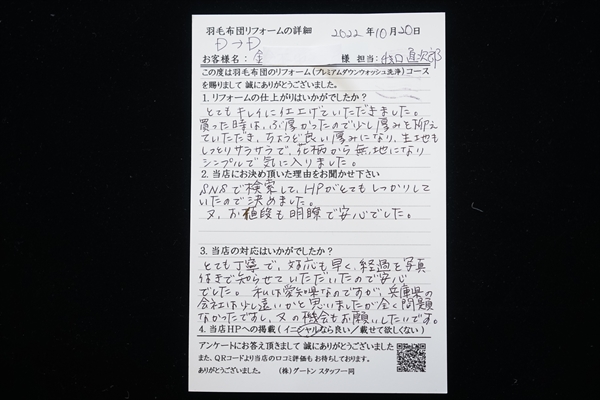 羽毛布団リフォームの詳細
2022年10月20日
D→D
お客様名：金 様 担当：
この度は羽毛布団のリフォーム（プレミアムダウンウォッシュ洗浄）コース
を賜りまして 誠にありがとうございました。
1. リフォームの仕上がりはいかがでしたか？
とてもキレイに仕上げていただきました。
買った時は、ぶ厚かったので少し厚みを抑え
ていただき、ちょうど良い厚みになり、生地も
しっとりサラサラで、花柄から無地になり
シンプルで気に入りました。
2. 当店にお決め頂いた理由をお聞かせ下さい
SNSで検索して、HPがとてもしっかりして
いたので決めました。
又、お値段も明瞭で安心でした。
3. 当店の対応はいかがでしたか？
とても丁寧で、対応も早く、経過を写真
付きで知らせていただいたので安心
でした。私は愛知県なのですが、兵庫県の
会社は少し遠いかと思いましたが全く問題
なかったですし、又の機会もお願いしたいです。
4. 当店HPへの掲載（イニシャルなら良い／載せて欲しくない）
アンケートにお答え頂きまして 誠にありがとうございました
また、QRコードより当店の口コミ評価も お待ちしております。
ありがとうございました。 （株）グートン スタッフ一同